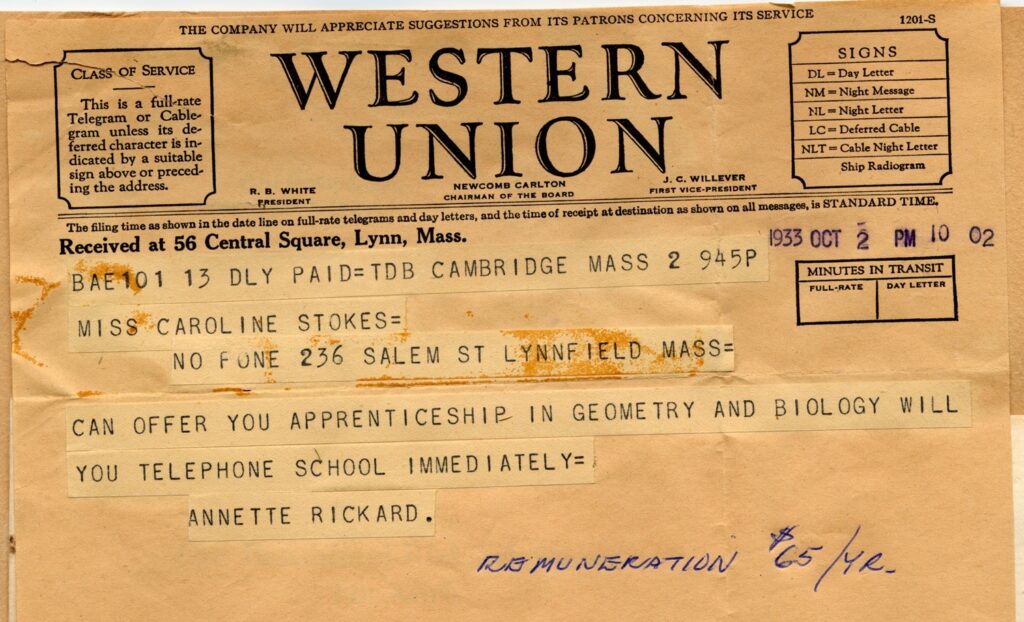 THE COMPANY WILL APPRECIATE SUGGESTIONS FROM ITS PATRONS CONCERNING ITS SERVICE
1201-S
CLASS OF SERVICE
This is a full-rate
Telegram or Cable-
gram unless its de-
ferred character is in-
dicated by a suitable
sign above or preced-
ing the address.
WESTERN
UNION
R. B. WHITE
PRESIDENT
NEWCOMB CARLTON
CHAIRMAN OF THE BOARD
J. C. WILLEVER
FIRST VICE-PRESIDENT
SIGNS
DL = Day Letter
NM = Night Message
NL = Night Letter
LC = Deferred Cable
NLT = Cable Night Letter
Ship Radiogram
The filing time as shown in the date line on full-rate telegrams and day letters, and the time of receipt at destination as shown on all messages, is STANDARD TIME.
Received at 56 Central Square, Lynn, Mass.
1933 OCT 2 PM 10 02
MINUTES IN TRANSIT
FULL-RATE
DAY LETTER
BAE101 13 DLY PAID=TDB CAMBRIDGE MASS 2 945P
MISS CAROLINE STOKES=
NO FONE 236 SALEM ST LYNNFIELD MASS=
CAN OFFER YOU APPRENTICESHIP IN GEOMETRY AND BIOLOGY WILL
YOU TELEPHONE SCHOOL IMMEDIATELY=
ANNETTE RICKARD.
REMUNERATION $65/YR.